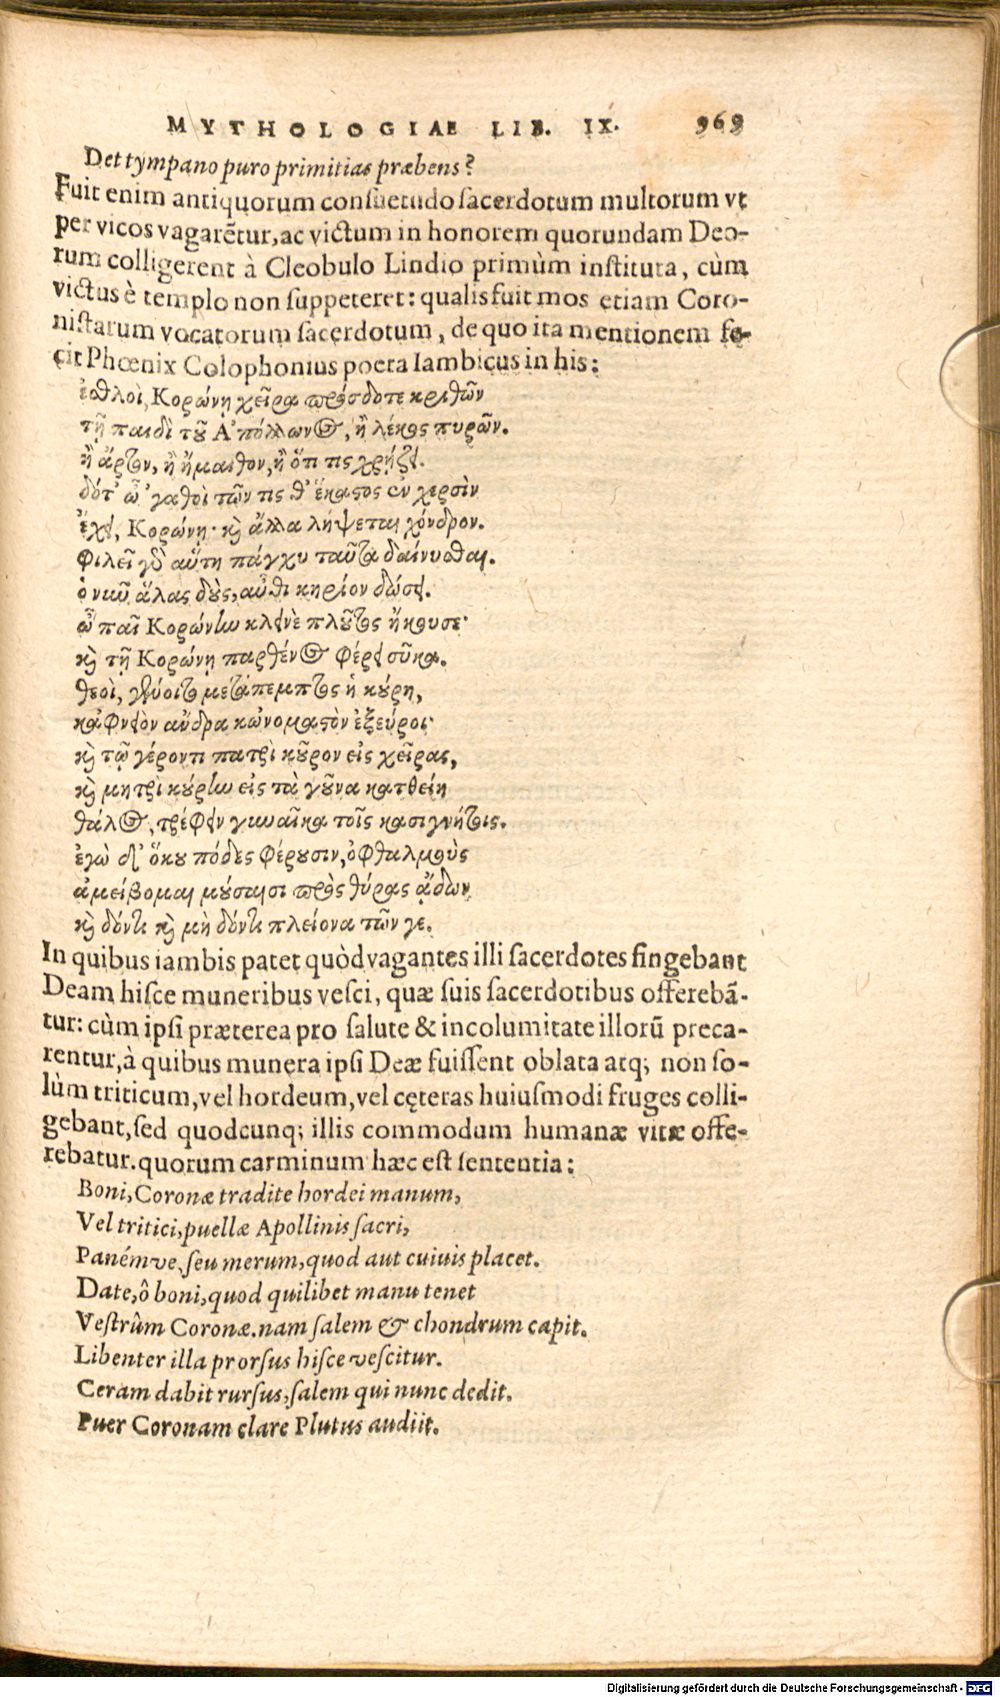 MYTHOLOGIAE LIB. IX. 969
Det tympano puro primitias præbens?
Fuit enim antiquorum consuetudo sacerdotum multorum vt
per vicos vagarẽtur, ac victum in honorem quorundam Deo-
rum colligerent à Cleobulo Lindio primùm instituta, cùm
victus è templo non suppeteret: qualis fuit mos etiam Coro-
nistarum vocatorum sacerdotum, de quo ita mentionem fe-
cit Phœnix Colophonius poeta Iambicus in his:
ἐσθλοὶ, Κορώνῃ χεῖρα πρόσδοτε κριθῶν
τῇ παιδὶ τοῦ Ἀπόλλωνος, ἢ λέκος πυρῶν.
ἢ ἄρτον, ἢ ἤμαιθον, ἢ ὅτι τις χρῄζει.
δότ' ὦ 'γαθοὶ τῶν τις θ' ἕκαστος ἐν χερσὶν
ἔχει, Κορώνῃ· καὶ ἅλλα λήψεται χόνδρον.
φιλεῖ γὰρ αὕτη πάγχυ ταῦτα δαίνυσθαι.
ὁ νῦν ἅλας δοὺς, αὖθι κηρίον δώσει.
ὦ παῖ Κορώνην κλεινὲ πλοῦτος ἤκουσε·
καὶ τῇ Κορώνῃ παρθένος φέρει σῦκα.
θεοὶ, γένοιτο μετάπεμπτος ἡ κούρη,
κἀφνειὸν ἄνδρα κὠνομαστὸν ἐξεύροι·
καὶ τῷ γέροντι πατρὶ κοῦρον εἰς χεῖρας,
καὶ μητρὶ κούρην εἰς τὰ γοῦνα κατθείη
θάλος, τρέφειν γυναῖκα τοῖς κασιγνήτοις.
ἐγὼ δ' ὅκου πόδες φέρουσιν, ὀφθαλμοὺς
ἀμείβομαι μούσαισι πρὸς θύρας ᾄδων
καὶ δόντι καὶ μὴ δόντι πλείονα τῶν γε.
In quibus iambis patet quòd vagantes illi sacerdotes fingebant
Deam hisce muneribus vesci, quæ suis sacerdotibus offerebã-
tur: cùm ipsi præterea pro salute & incolumitate illorũ preca-
rentur, à quibus munera ipsi Deæ fuissent oblata atq; non so-
lùm triticum, vel hordeum, vel cęteras huiusmodi fruges colli-
gebant, sed quodcunq; illis commodum humanæ vitæ offe-
rebatur. quorum carminum hæc est sententia:
Boni, Coronæ tradite hordei manum,
Vel tritici, puellæ Apollinis sacri,
Panémve, seu merum, quod aut cuiuis placet.
Date, ô boni, quod quilibet manu tenet
Vestrûm Coronæ. nam salem & chondrum capit.
Libenter illa prorsus hisce vescitur.
Ceram dabit rursus, salem qui nunc dedit.
Puer Coronam clare Plutus audiit.
Digitalisierung gefördert durch die Deutsche Forschungsgemeinschaft - DFG